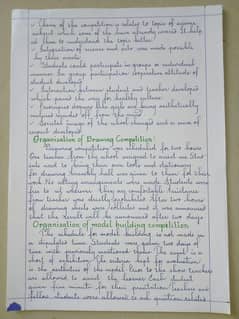 ✓ Theme of the competition is related to topic of science
subject which some of the have already learned. It help
us them to understand the topic better.
✓ Integration of science and arts was made possible
by this mode.
✓ Students could participate in groups or individual
manner. In group participation cooperative attitude of
student developed
✓ Interaction between student and teacher developed
which paved the way for healthy culture.
✓ Passages drawing this arts and being aesthetically
apart from the
✓ Societal image of the school changed and a sense of
developed
Organisation of Drawing Competition:
Drawing competition was scheduled for two hours
One teacher from the school assigned to assist us. Stud
ents used to bring their own tools and stationery
for drawing. Assembly hall was given to them for their
work. No sitting arrangements were made. Students were
free to sit anywhere they are comfortable. Facilitation
from teacher was strictly prohibited. After two hours
of drawing sheets were collected and it was announced
that the result will be announced after two days.
Organisation of model building competition
The schedule for model building is not made in
a stipulated time. Students were given two days of
time with previously mentioned that. The event is a
short of exhibition. The criteria kept for evaluation
is the aesthetics of the model. Prior to the show teachers
are allowed to assist the learner. Each student
given five minute for their presentation. Teachers and
fellow students were allowed to ask question related